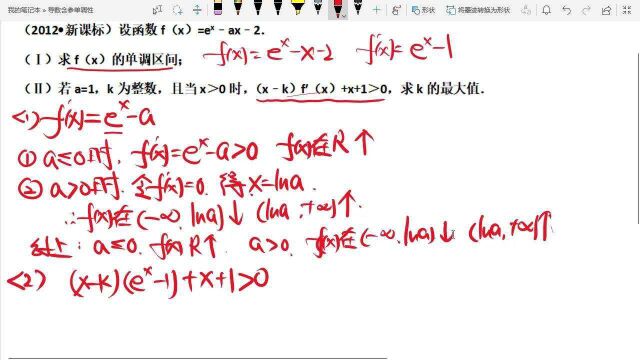 我的笔记本 » 导数含参单调性
形状
将墨迹转换为形状
(2012•新课标) 设函数 f (x) =eˣ﹣ax﹣2.
(Ⅰ) 求 f (x) 的单调区间;
f(x)=eˣ-x-2 f'(x)=eˣ-1
(Ⅱ) 若 a=1, k 为整数, 且当 x>0 时, (x﹣k) f′ (x) +x+1>0, 求 k 的最大值.
<1> f'(x)=eˣ-a
① a≤0时, f'(x)=eˣ-a>0 f(x)在R↑
② a>0时, 令f'(x)=0, 得x=lna.
∴f(x)在(-∞, lna)↓ (lna, +∞)↑.
综上: a≤0, f(x) R↑. a>0, f(x)在(-∞, lna)↓ (lna, +∞)↑
<2> (x-k)(eˣ-1)+x+1>0